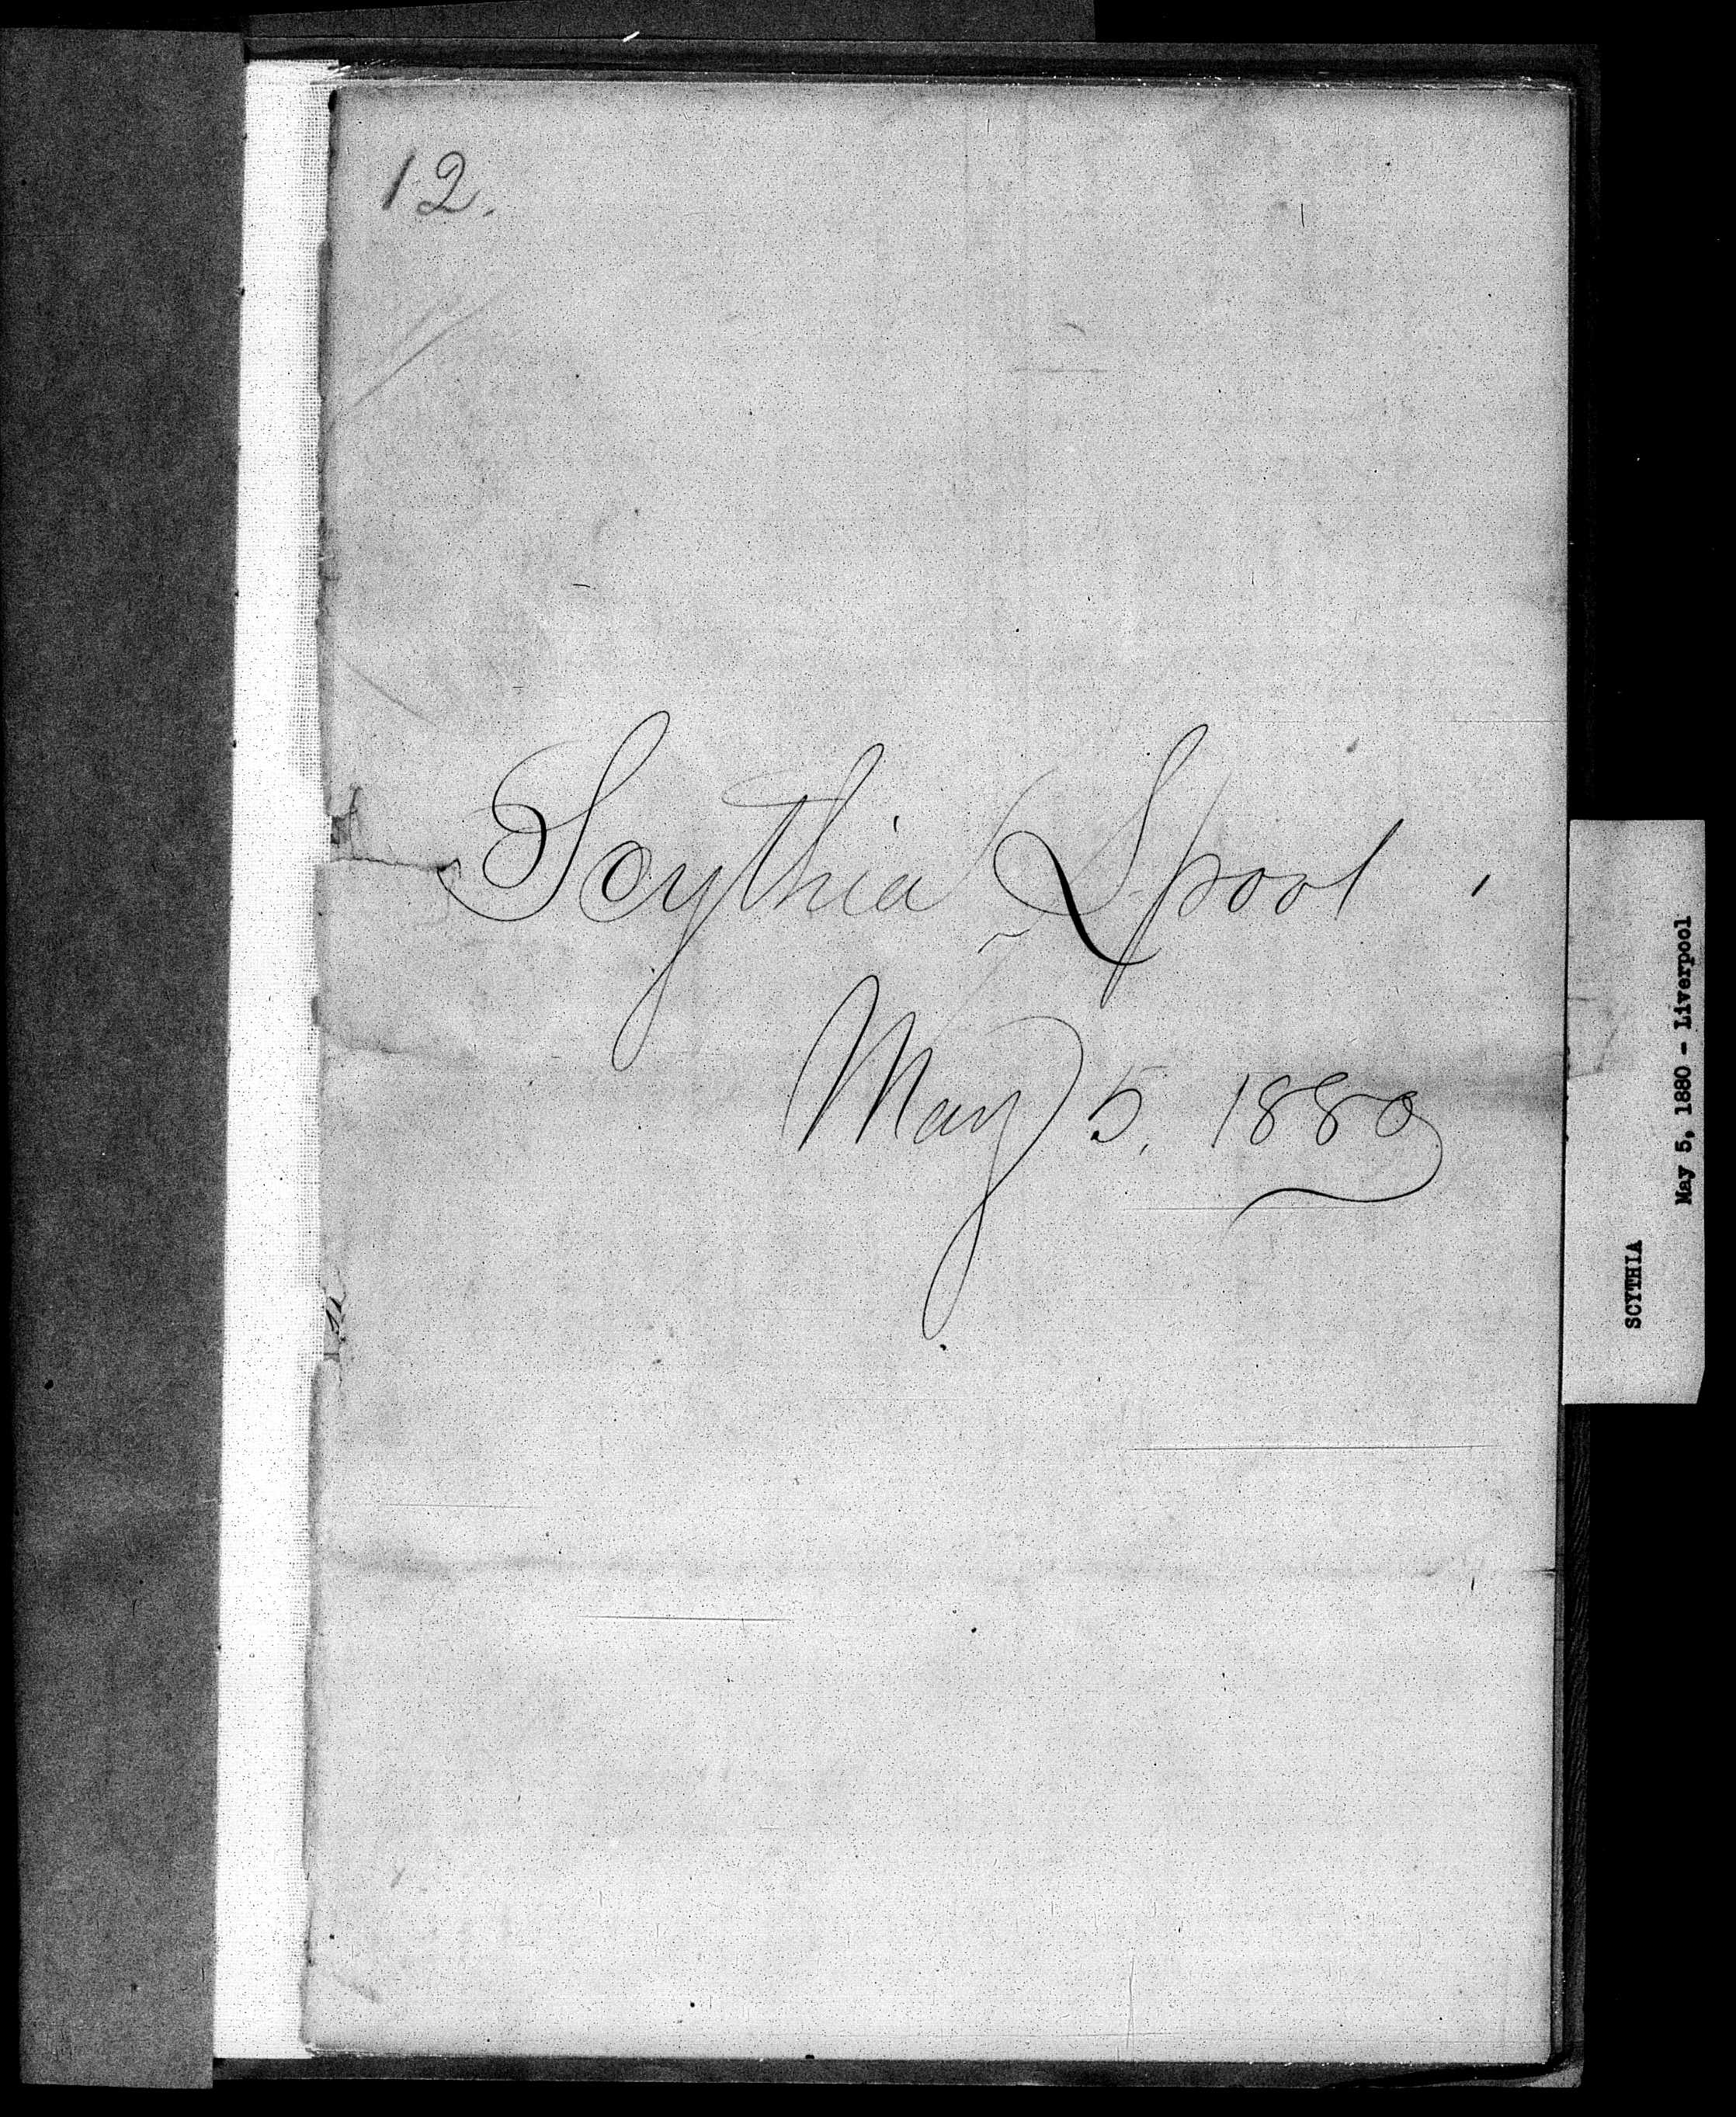 12.
Scythia Lpool
May 5. 1880
SCYTHIA
May 5, 1880 - Liverpool